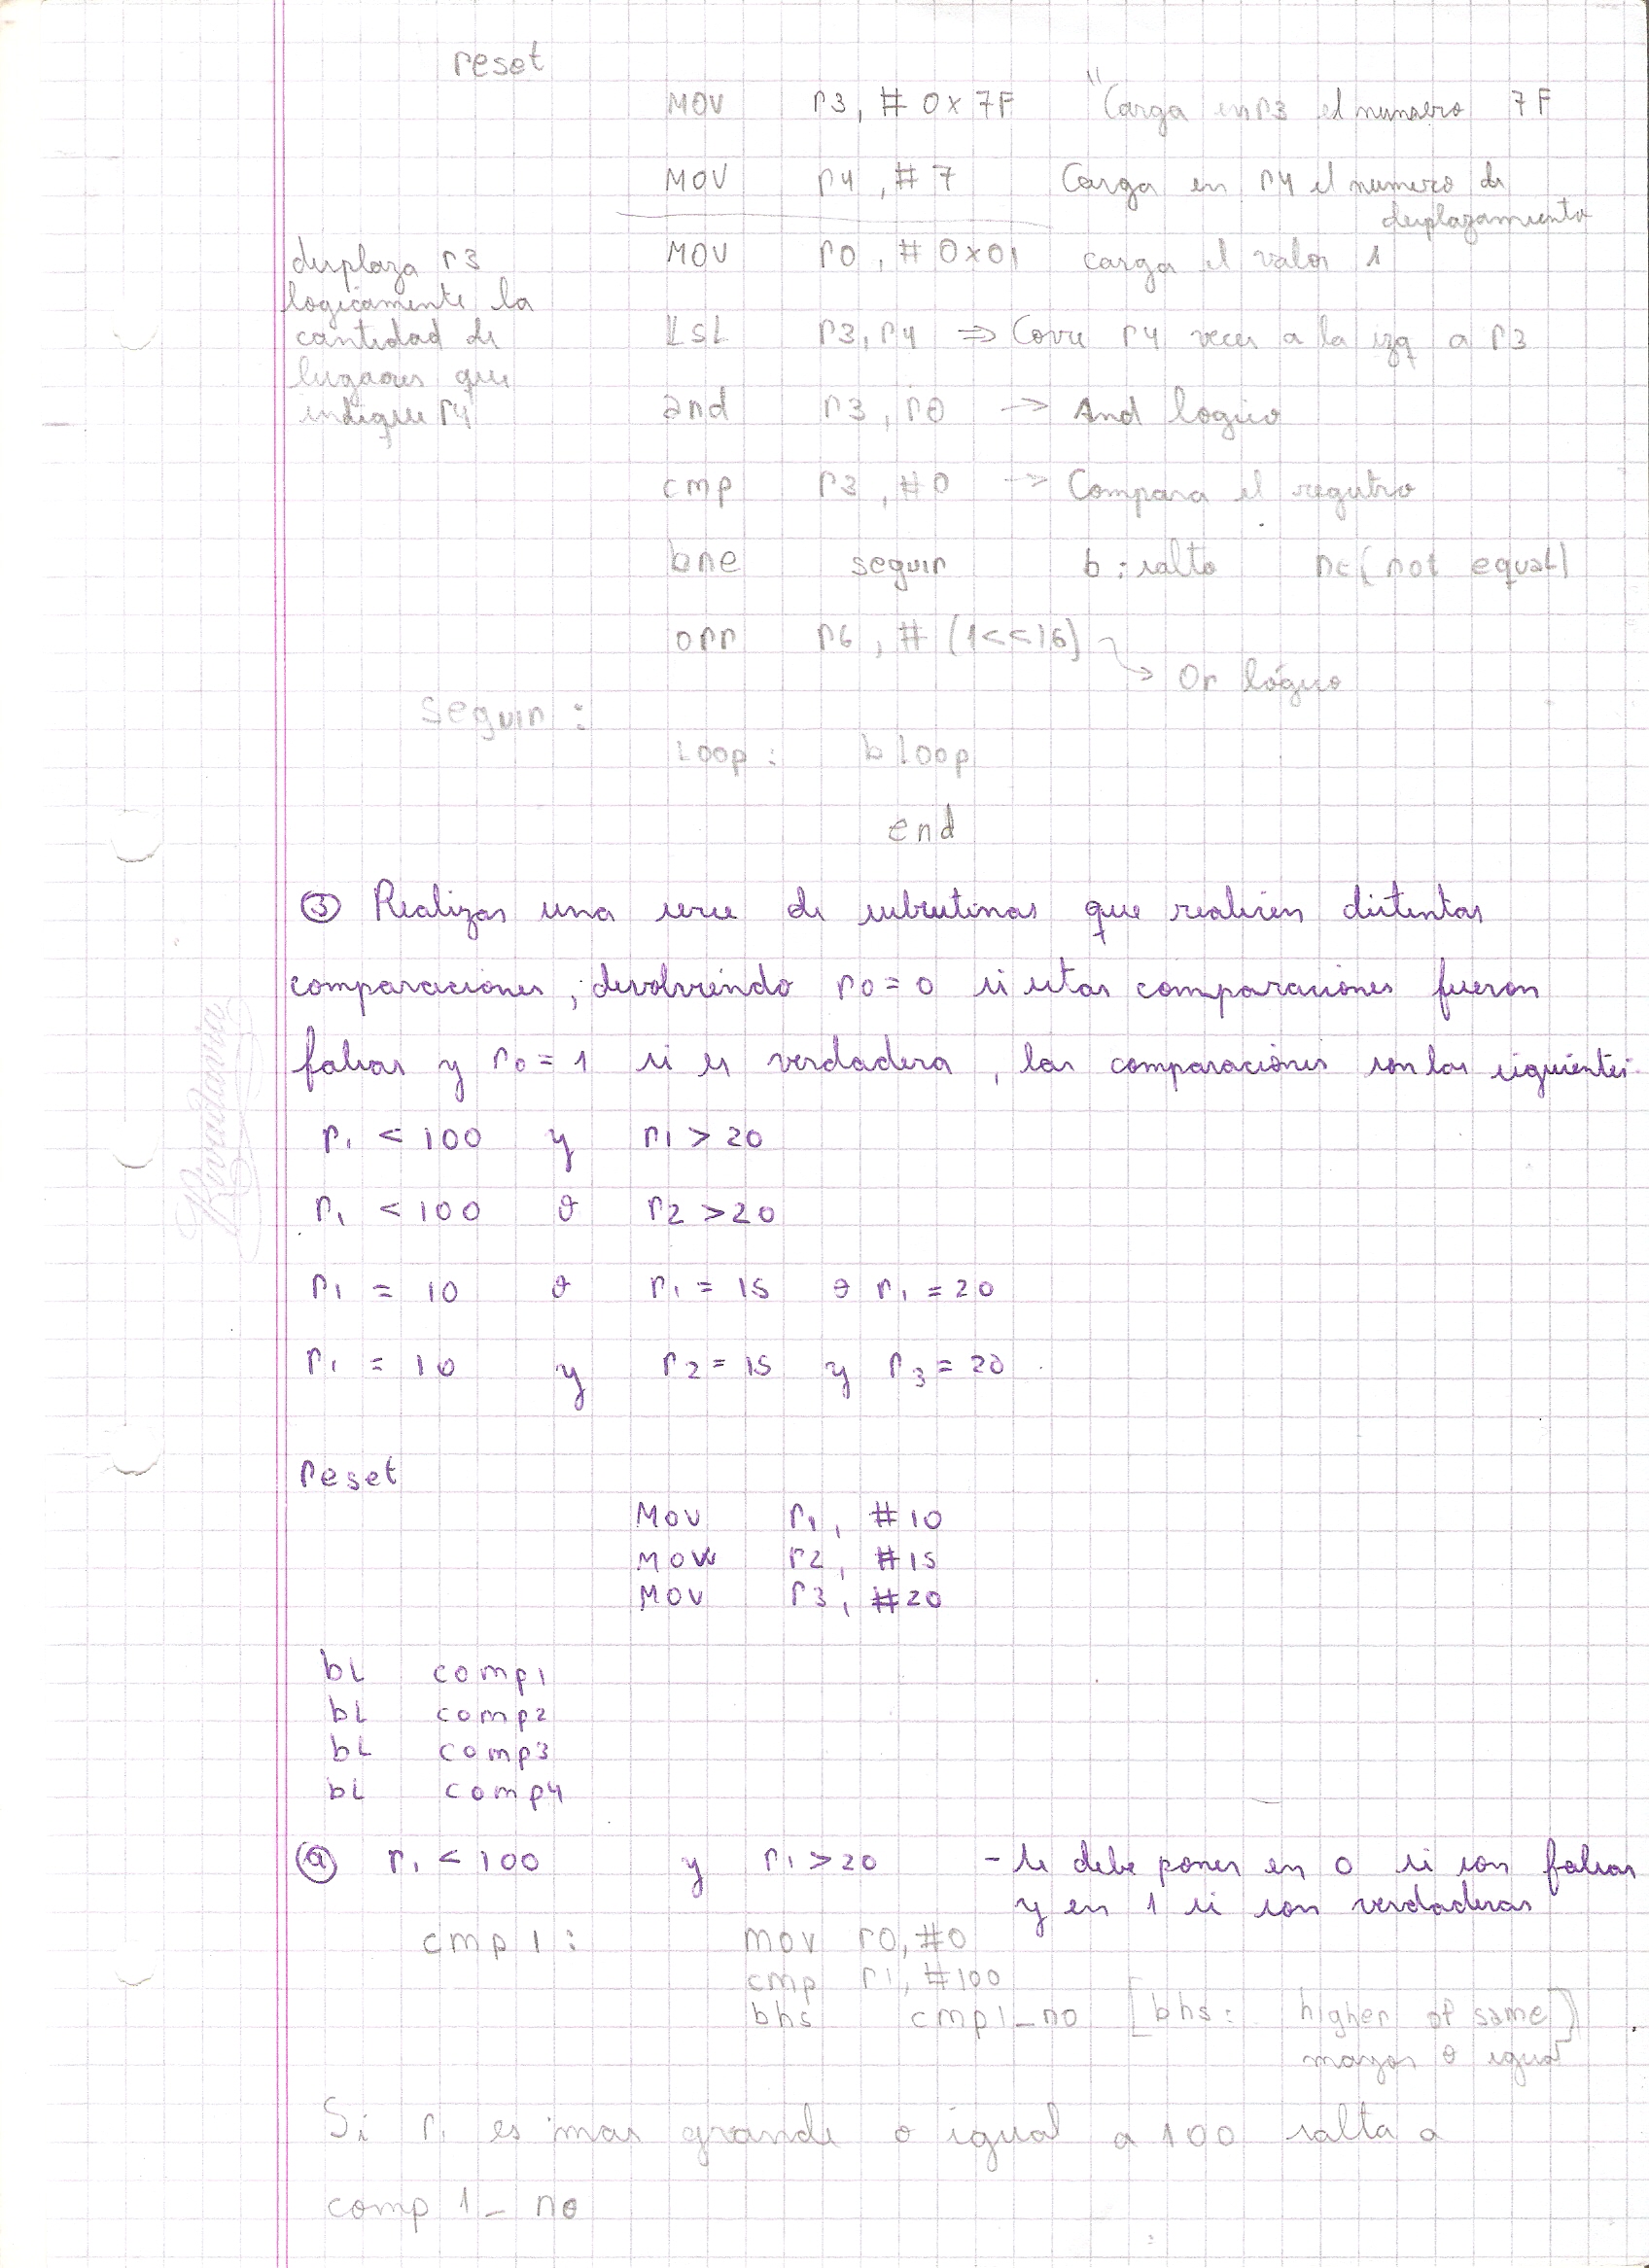 reset
MOV r3, # 0x7F "Carga en r3 el numero 7F
MOV r4, # 7 Carga en r4 el numero de
desplazamiento
MOV r0, # 0x01 carga el valor 1
desplaza r3
logicamente la
cantidad de
lugares que
indique r4
LSL r3, r4 => Corre r4 veces a la izq a r3
and r3, r0 -> And logico
cmp r3, #0 -> Compara el registro
bne seguir b: salto ne (not equal)
orr r6, # (1<<16)
-> Or lógico
seguir:
Loop: b loop
end
③ Realizar una serie de subrutinas que realicen distintas
comparaciones, devolviendo r0=0 si estas comparaciones fueron
falsas y r0=1 si es verdadera, las comparaciones son las siguientes.
r1 < 100 y r1 > 20
r1 < 100 o r2 > 20
r1 = 10 o r1 = 15 o r1 = 20
r1 = 10 y r2 = 15 y r3 = 20
Rivadavia
reset
MOV r1, #10
MOV r2, #15
MOV r3, #20
bL comp1
bL comp2
bL comp3
bL comp4
ⓐ r1 < 100 y r1 > 20 - Se debe poner en 0 si son falsas
y en 1 si son verdaderas
cmp1: mov r0, #0
cmp r1, #100
bhs cmp1_no [bhs: higher of same]
mayor o igual
Si r1 es mas grande o igual a 100 salta a
comp 1_no